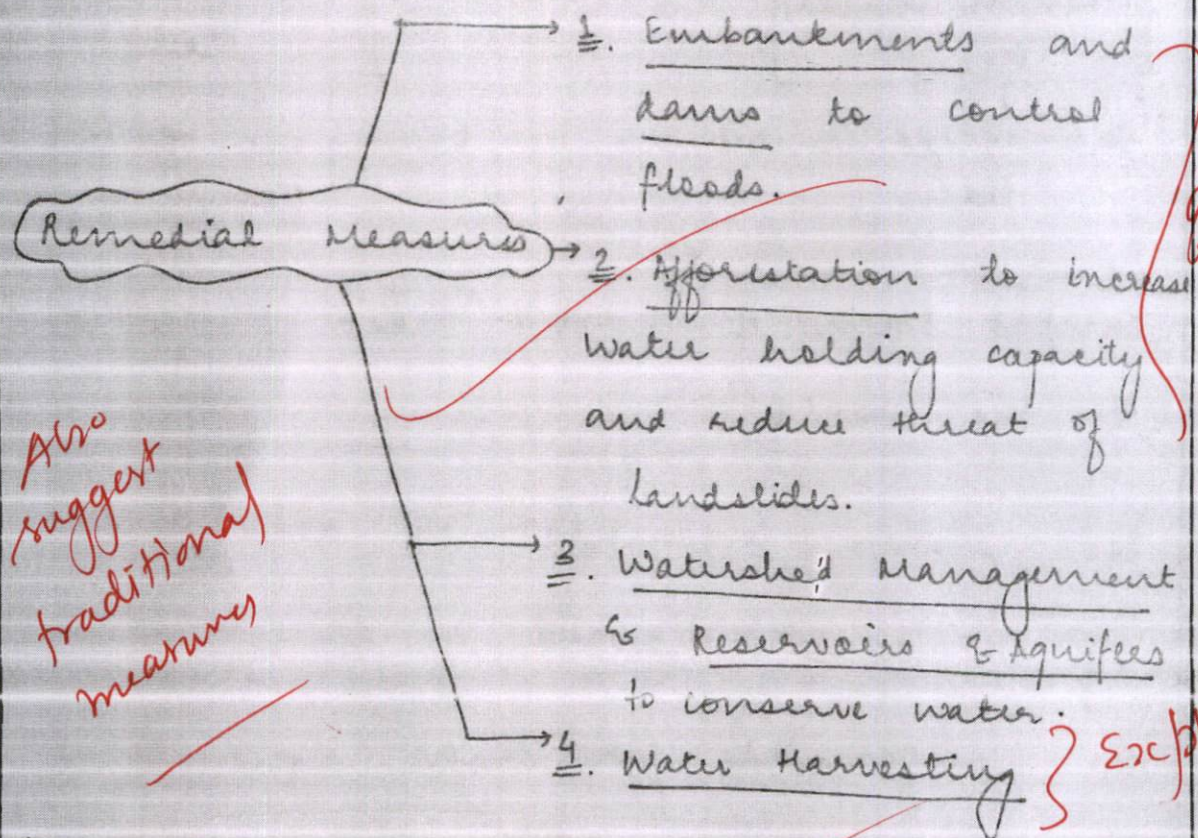 1. Embankments and
dams to control
floods.
Remedial Measures
2 Afforestation to increase
Water holding capacity
and reduce threat of
landslides.
3. Watershed Management
Reservoirs & Aquifers
to conserve water.
4. Water Harvesting
Also
suggest
traditional
measures